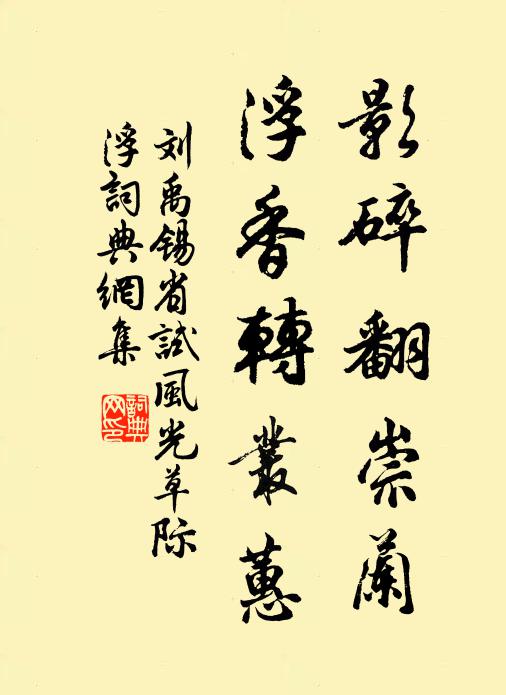 影碎翻崇蘭
浮香轉叢蕙
刘禹锡省試風光草际
浮詞典網集
詞典网印